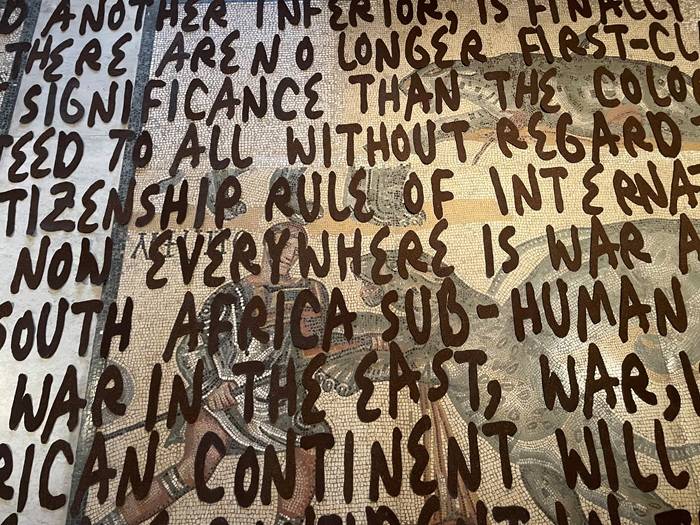 D ANOTHER INFERIOR, IS FINALLY
THERE ARE NO LONGER FIRST-CL
SIGNIFICANCE THAN THE COLO
TEED TO ALL WITHOUT REGARD
TIZENSHIP RULE OF INTERNA
NOW EVERYWHERE IS WAR A
SOUTH AFRICA SUB-HUMAN
WAR IN THE EAST, WAR,
RICAN CONTINENT WILL